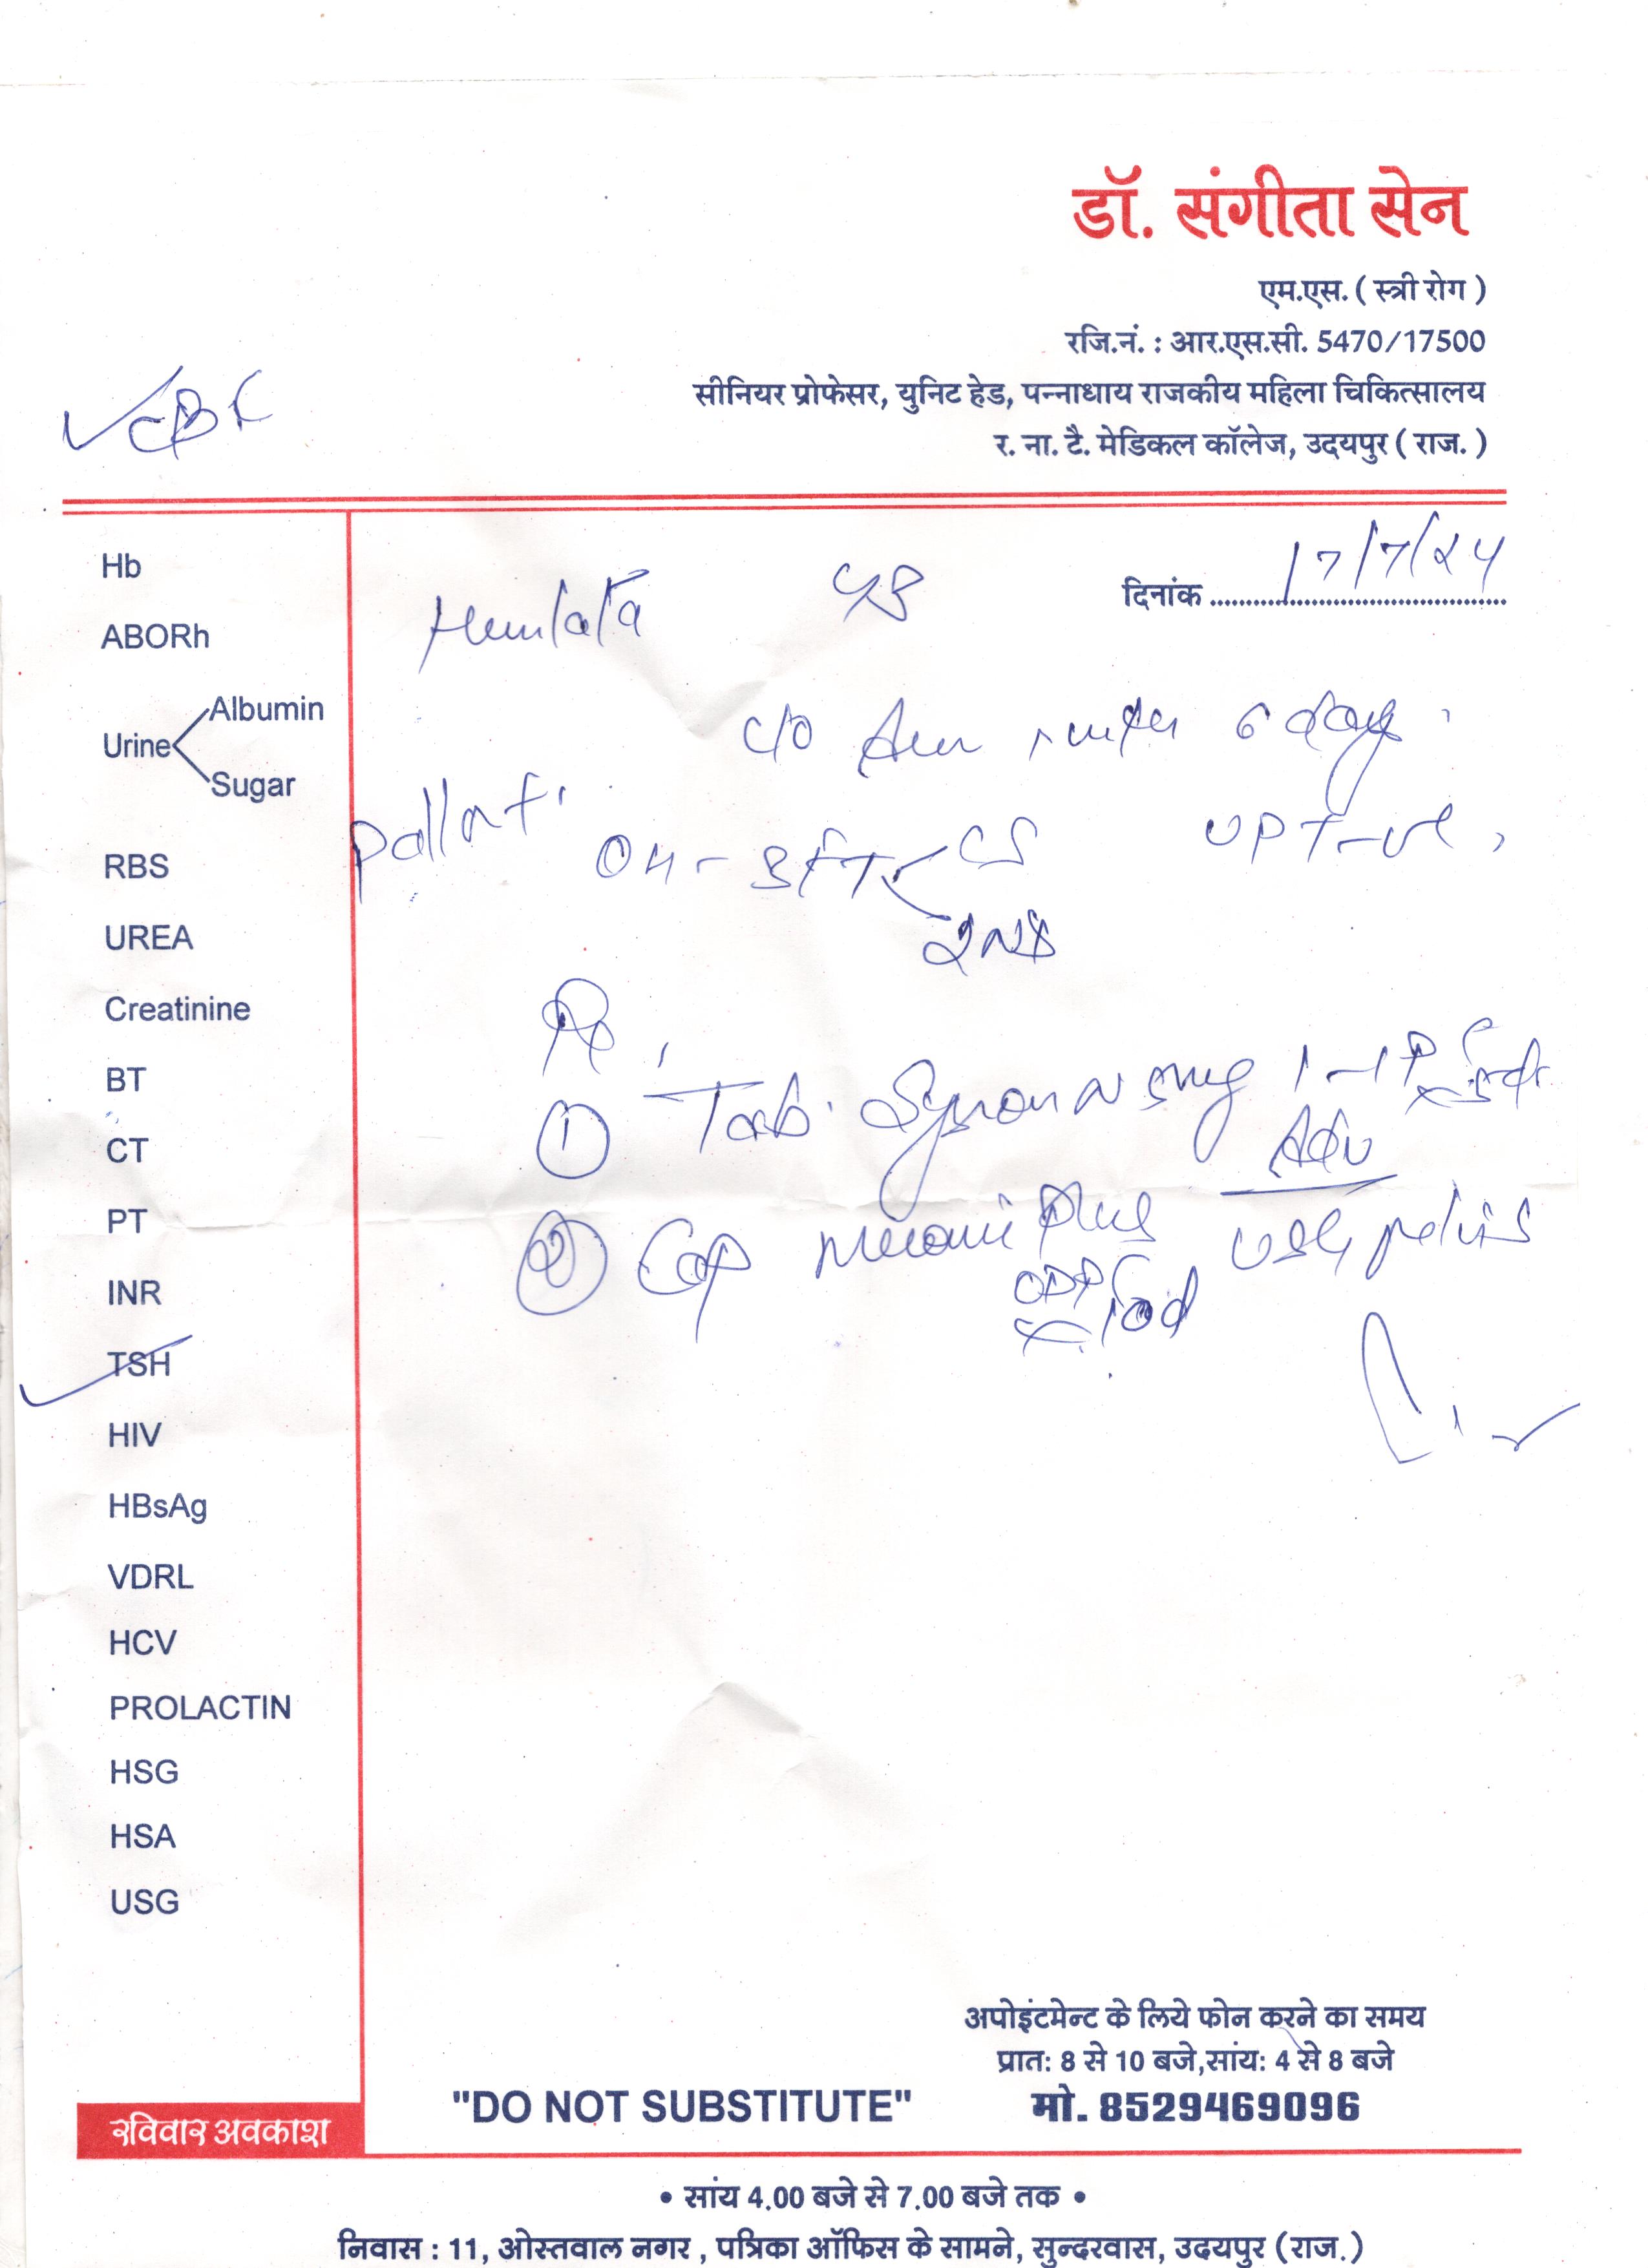 डॉ. संगीता सेन
एम.एस. ( स्त्री रोग )
रजि.नं. : आर.एस.सी. 5470/17500
सीनियर प्रोफेसर, युनिट हेड, पन्नाधाय राजकीय महिला चिकित्सालय
र. ना. टै. मेडिकल कॉलेज, उदयपुर ( राज. )
CBC
दिनांक 17/7/24
Hemlata
C/O 6 days
Pallor +
UPT -ve
CS
2ND
Rx
① Tab. N 5mg 1-1
Adv
② Cap Plus
USG pelvis
OD
Hb
ABORh
Urine
Albumin
Sugar
RBS
UREA
Creatinine
BT
CT
PT
INR
TSH
HIV
HBsAg
VDRL
HCV
PROLACTIN
HSG
HSA
USG
अपोइंटमेन्ट के लिये फोन करने का समय
प्रात: 8 से 10 बजे,सांय: 4 से 8 बजे
"DO NOT SUBSTITUTE"
मो. 8529469096
रविवार अवकाश
• सांय 4.00 बजे से 7.00 बजे तक •
निवास : 11, ओस्तवाल नगर , पत्रिका ऑफिस के सामने, सुन्दरवास, उदयपुर (राज.)